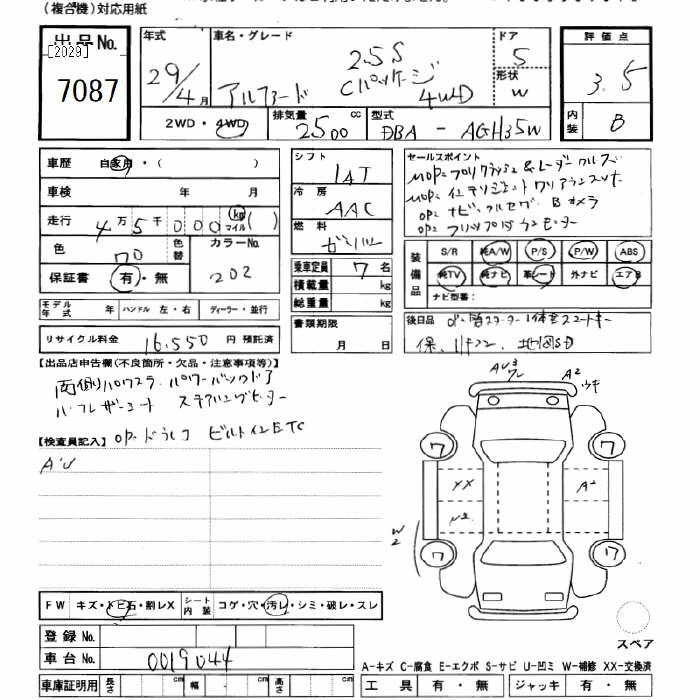 (複合機)対応用紙
出品No.
[2029]
7087
年式
29/4月
車名・グレード
アルファード
2.5S
Cパッケージ
4WD
ドア
5
形状
W
評価点
3.5
内装
B
2WD・4WD
排気量
2500cc
型式
DBA - AGH35W
車歴
自家用・( )
車検
年 月
走行
4万5千000 km マイル( )
色
色替
カラーNo.
202
保証書
有・無
モデル年式
年
ハンドル 左・右
ディーラー・並行
リサイクル料金
16,550円 預託済
シフト
IAT
冷房
AAC
燃料
ガソリン
乗車定員
7名
積載量
kg
総重量
kg
書類期限
月 日
セールスポイント
MOP=プリクラッシュ&レーダークルーズ
MOP=インテリジェントクリアランスソナー
OP=ナビ・フルセグ Bカメラ
OP=フリップダウンモニター
装備品
S/R
純A/W
P/S
P/W
ABS
純TV
純ナビ
革シート
外ナビ
エアB
ナビ型番:
後日品
【出品店申告欄(不良箇所・欠品・注意事項等)】
両側パワスラ・パワーバックドア
ハーフレザーシート ステアリングヒーター
OP=ドラレコ ビルトインETC
【検査員記入】
A・U
AU3
A2
ウキ
7
7
XX
A2
W2
7
7
FW
キズ・トビ石・割レX
シート内装
コゲ・穴・汚レ・シミ・破レ・スレ
登録No.
車台No.
0019044
スペア
A-キズ C-腐食 E-エクボ S-サビ U-凹ミ W-補修 XX-交換済
車庫証明用
長さ
cm
幅
cm
高さ
cm
工具
有・無
ジャッキ
有・無